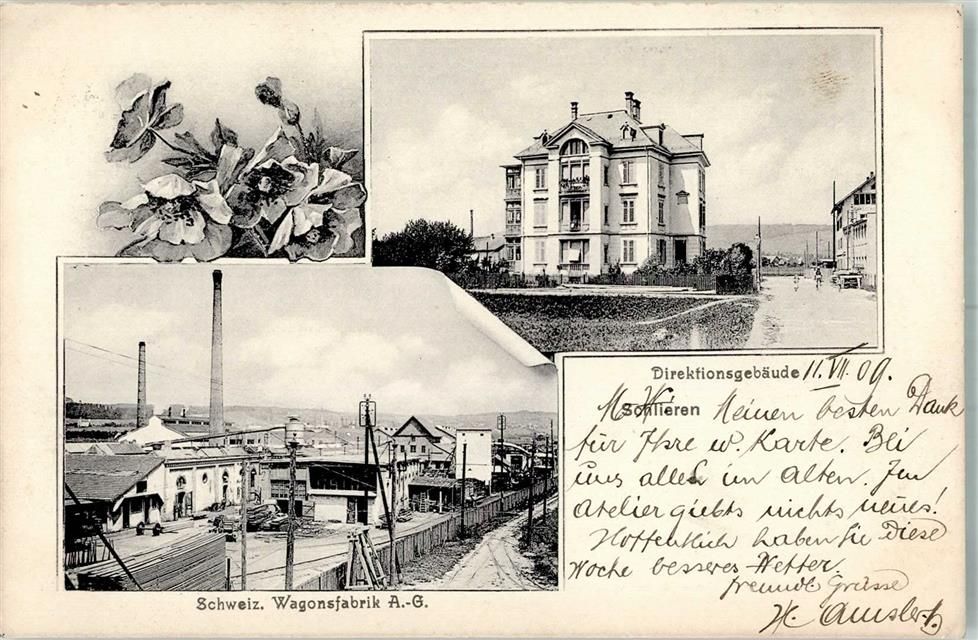 Direktionsgebäude 11.VII.09.
Schlieren Meinen besten Dank
für Ihre w. Karte. Bei
uns alles im Alten. Im
Atelier giebts nichts neues!
Hoffentlich haben Sie Diese
Woche besseres Wetter.
freundl Grüsse
H. Amsler
Schweiz. Wagonsfabrik A.-G.